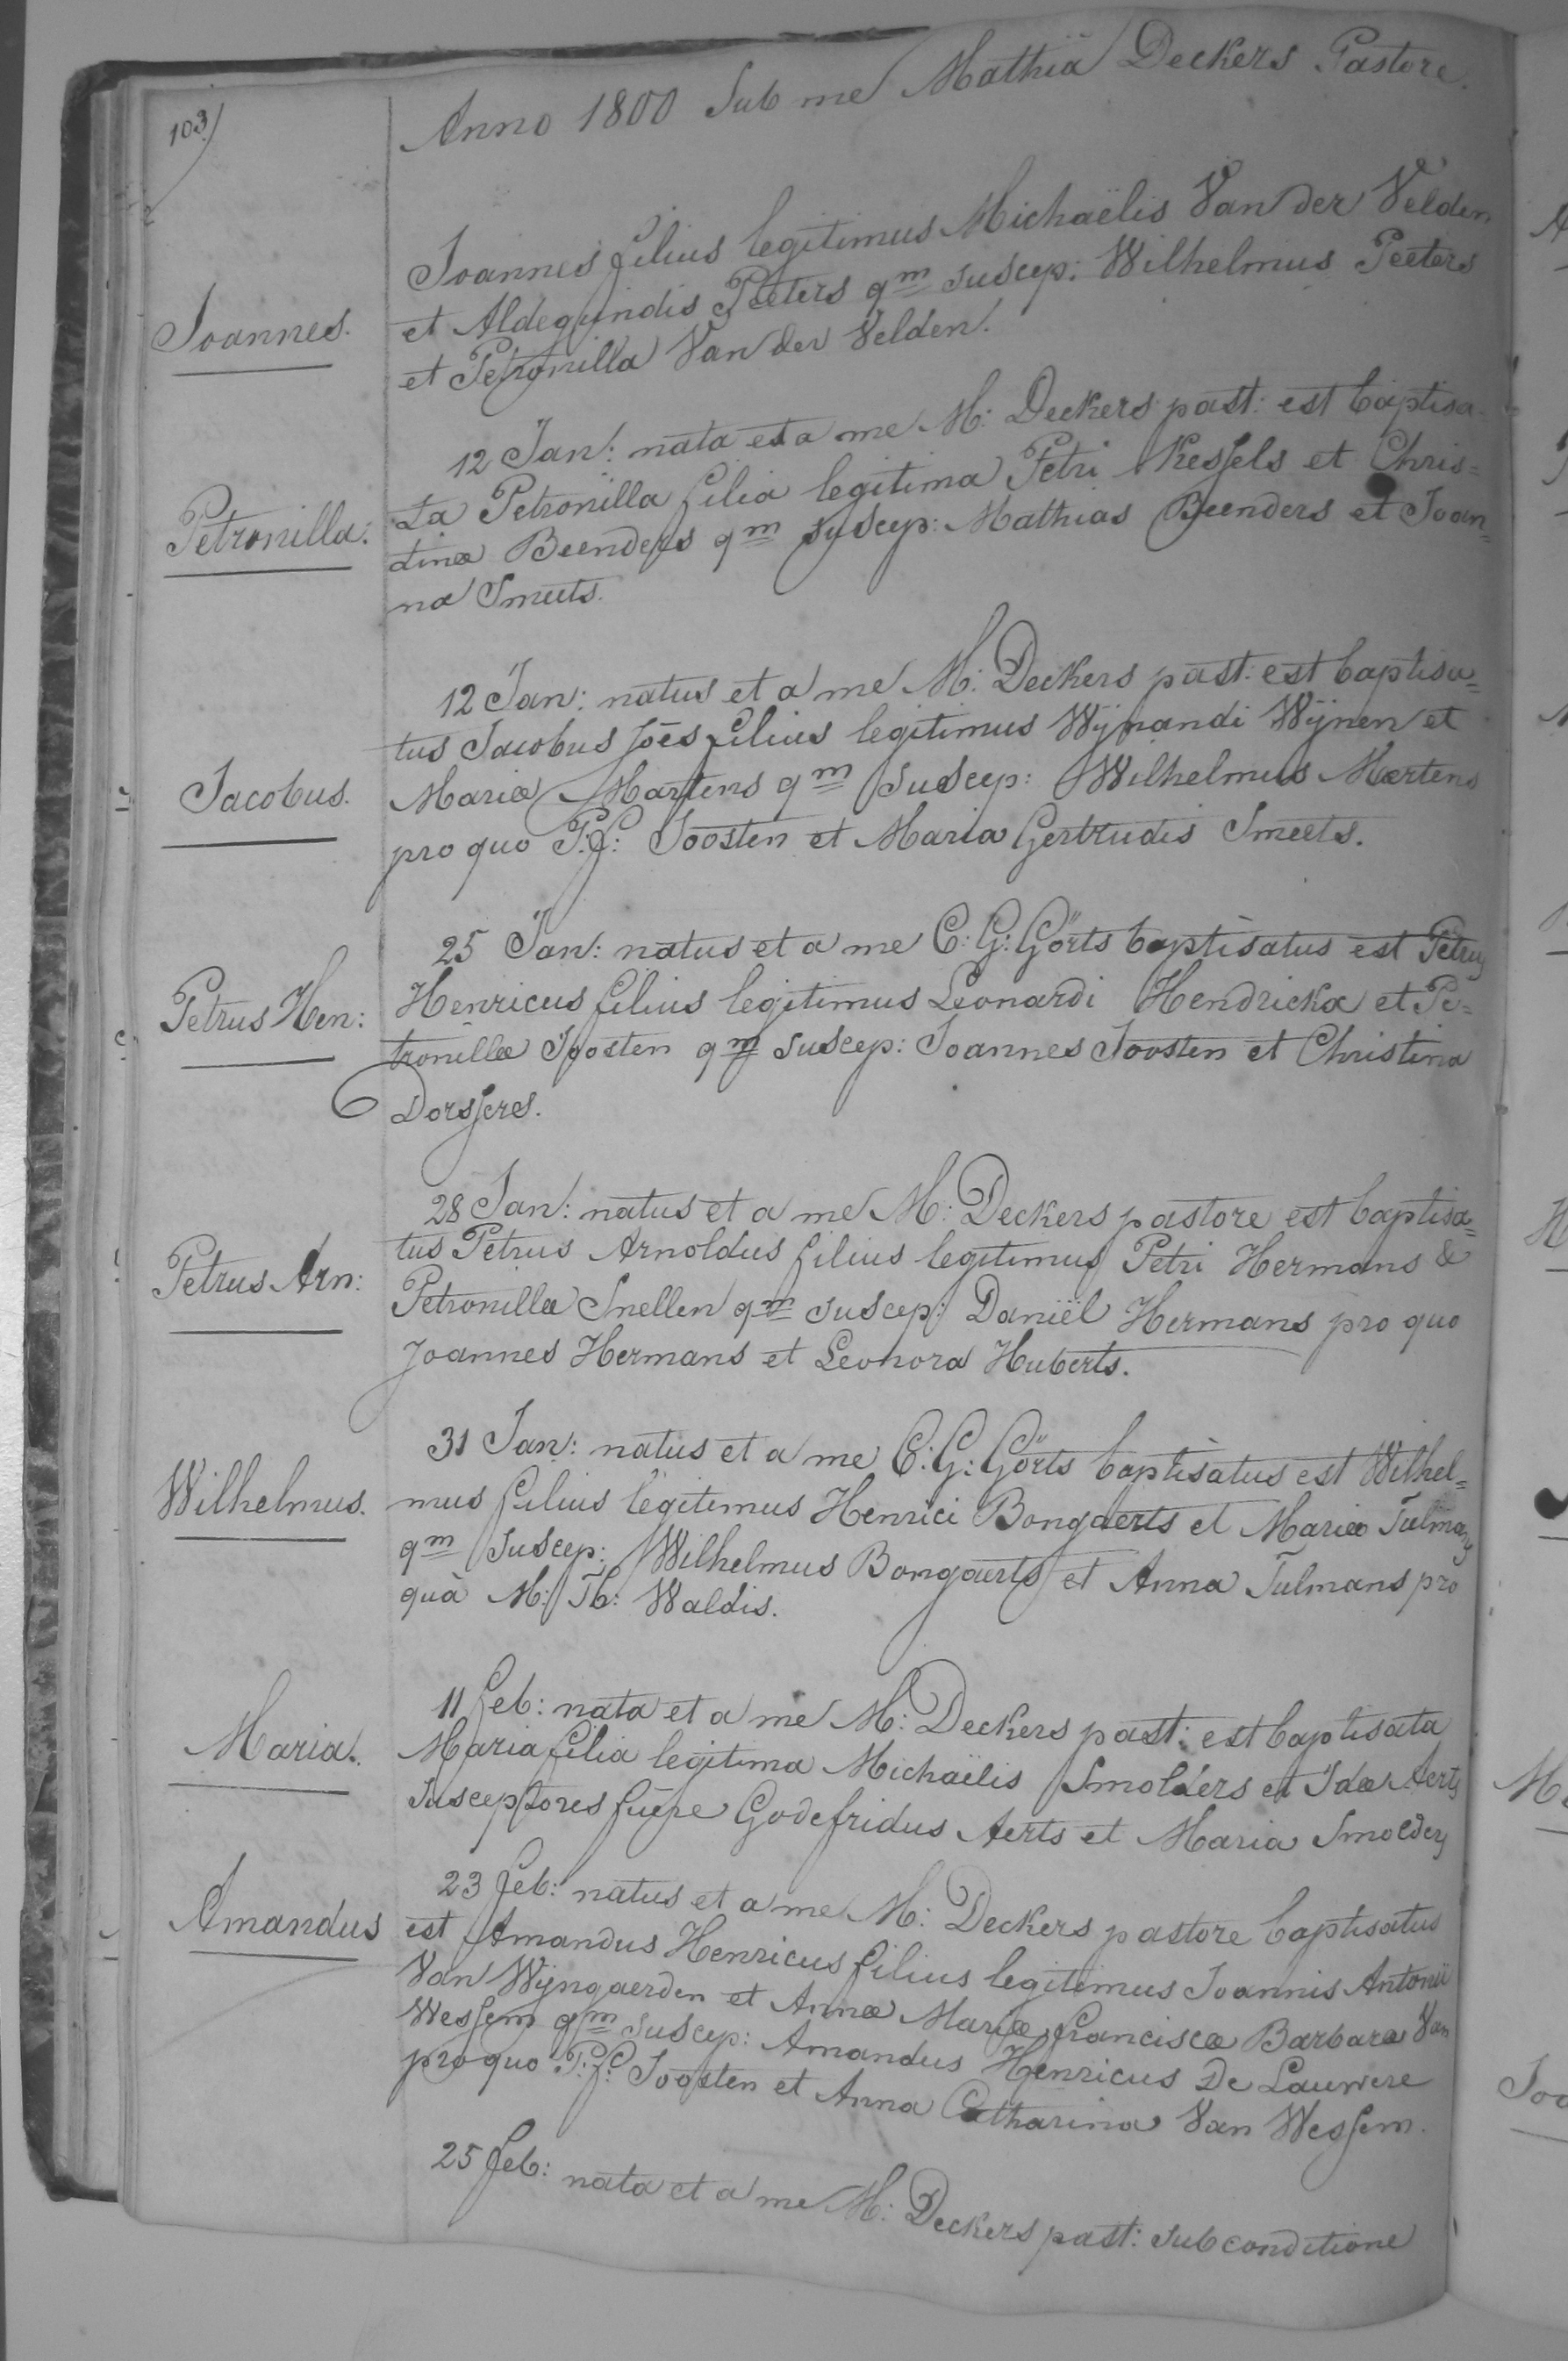 103
Anno 1800 Sub me Mathia Deckers Pastore.
Joannes filius legitimus Michaëlis Van der Velden
et Aldegundis Peeters qm suscep: Wilhelmus Peeters
Joannes.
et Petronilla Van der Velden.
12 Jan: nata et a me M: Deckers past: est baptisa-
Petronilla.
ta Petronilla filia legitima Petri Kessels et Chris=
tinæ Beenders qm suscep: Mathias Beenders et Joan=
na Smeets.
12 Jan: natus et a me M: Deckers past: est baptisa=
tus Jacobus Joēs filius legitimus Wÿnandi Wÿnen et
Jacobus.
Mariæ Martens qm suscep: Wilhelmus Mærtens
pro quo P:J: Joosten et Maria Gertrudis Smeets.
25 Jan: natus et a me C: G: Görts baptisatus est Petrus
Petrus Hen:
Henricus filius legitimus Leonardi Hendrickx et Pe=
tronillæ Joosten qm suscep: Joannes Joosten et Christina
Dorssers.
28 Jan: natus et a me M: Deckers pastore est baptisa=
Petrus Arn:
tus Petrus Arnoldus filius legitimus Petri Hermans &
Petronillæ Snellen qm suscep: Daniël Hermans pro quo
Joannes Hermans et Leonora Huberts.
31 Jan: natus et a me C: G: Görts baptisàtus est Wilhel=
Wilhelmus.
mus filius legitimus Henrici Bongaerts et Mariæ Tulmans
qm suscep: Wilhelmus Bongaerts et Anna Tulmans pro
quà M: Th: Waldis.
11 feb: nata et a me M: Deckers past: est baptisata
Maria.
Maria filia legitima Michaëlis Smolders et Idæ Aerts
susceptores fuere Godefridus Aerts et Maria Smolders
23 feb: natus et a me M: Deckers pastore baptisatus
Amandus
est Amandus Henricus filius legitimus Joannis Antonii
Van Wÿngaerden et Annæ Mariæ franciscæ Barbaræ Van
Wessem qm suscep: Amandus Henricus De Lauwere
pro quo P:J: Joosten et Anna Catharina Van Wessem.
25 feb: nata et a me M: Deckers past: sub conditione